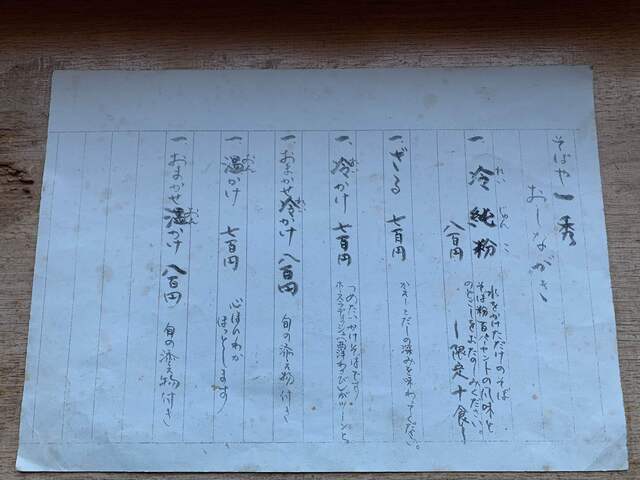 そばや 一秀
おしながき
一、冷純粉 八百円 ー限定十食ー
れい じゅん こ
水をかけただけのそば
そば粉百パーセントの風味と
のどごしをおたのしみください
一、ざる 七百円
かえしとだしの深みを味わって下さい。
一、冷かけ 七百円
つめたいかけそばです。
ホースラディッシュ(西洋わさび)がツーンと
一、おまかせ冷かけ 八百円 旬の添え物付き
一、温かけ 七百円 心ほのわか
ほっとします
一、おまかせ温かけ 八百円 旬の添え物付き